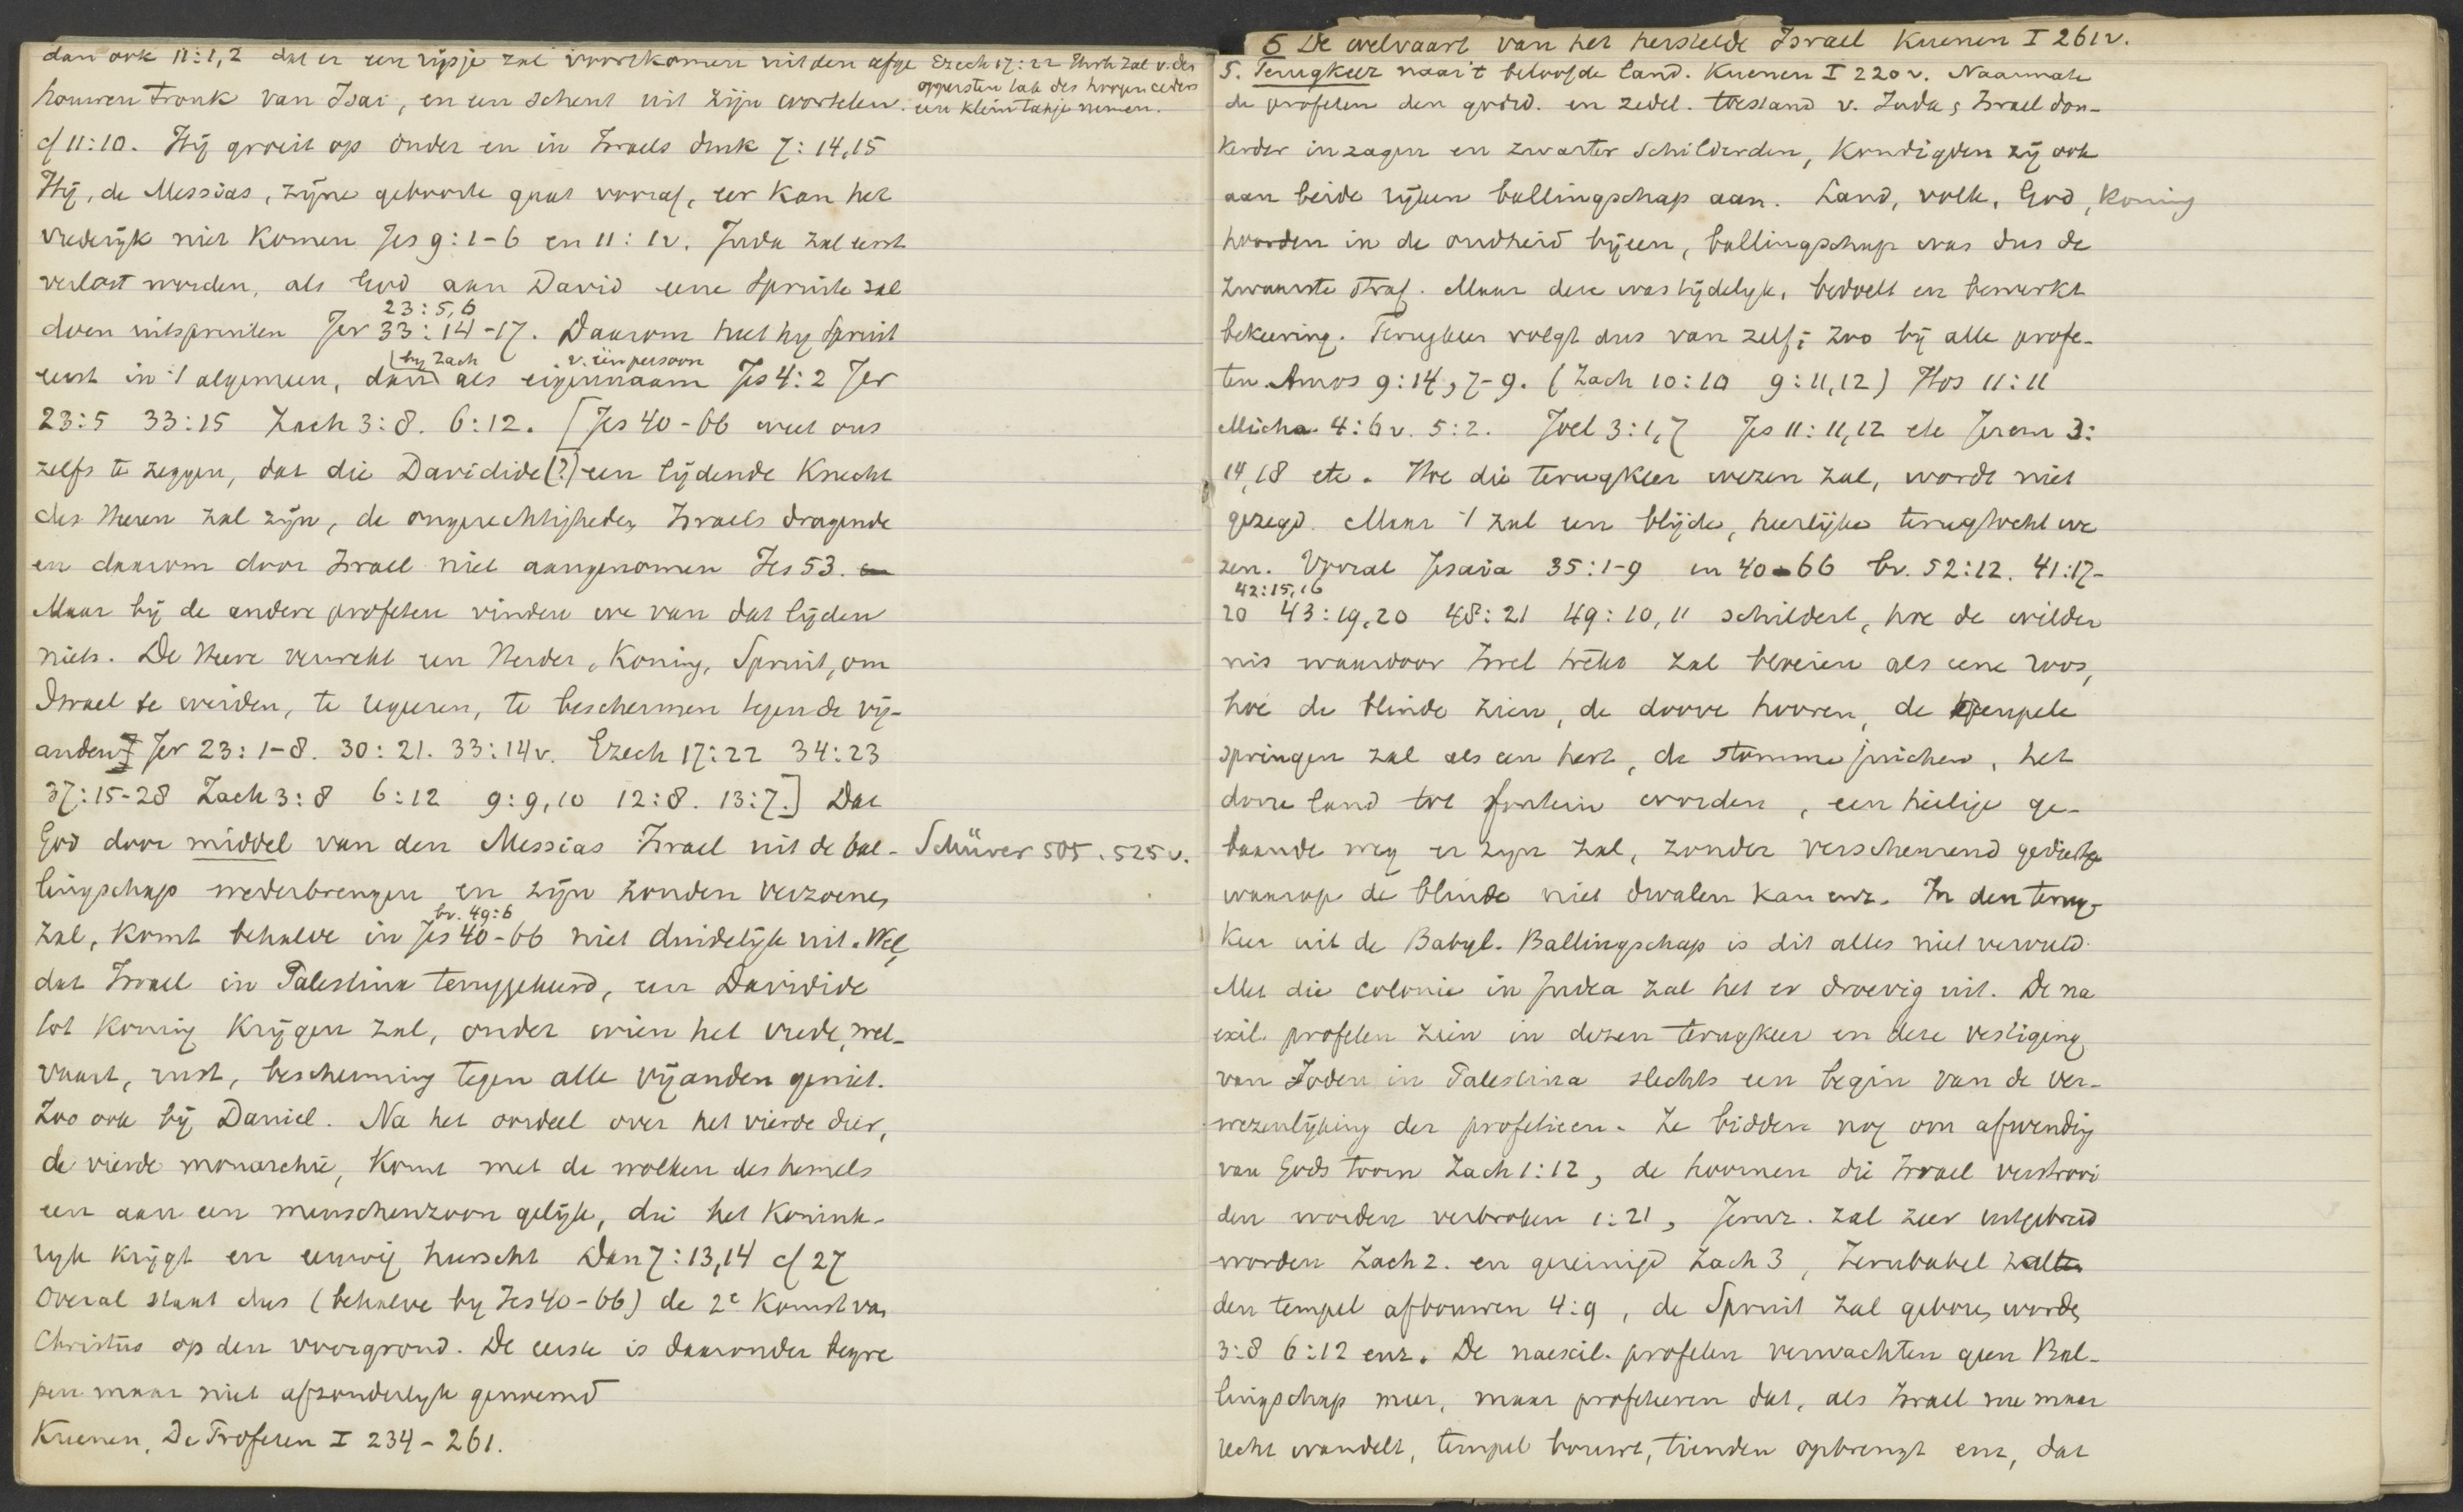 dan ook 11:1,2 dat er een rijsje zal voortkomen uit den afge
houwen tronk van Isai, en een scheut uit zijn wortelen.
Ezech 17:22 Jhvh zal v. den
oppersten tak des hoogen ceders
een klein takje nemen.
cf 11:10. Hij groeit op onder en in Israels druk 7:14,15
Hij, de Messias, zijne geboorte gaat vooraf, eer kan het
vrederijk niet komen Jes 9:1-6 en 11:1v. Juda zal eerst
verlost worden, als God aan David eene Spruite zal
23:5,6
doen uitspruiten Jer 33:14-17. Daarom heet hij Spruit
by Zach v. één persoon
eerst in 't algemeen, dan als eigennaam Jes 4:2 Jer
23:5 33:15 Zach 3:8. 6:12. [Jes 40-66 weet ons
zelfs te zeggen, dat die Davidide (?) een lijdende Knecht
des Heeren zal zijn, de ongerechtigheden Israels dragende
en daarom door Israel niet aangenomen Jes 53. en
Maar bij de andere profeten vinden we van dat lijden
niets. De Heere verwekt een Herder, Koning, Spruit, om
Israel te weiden, te regeeren, te beschermen tegen de vij-
anden] Jer 23:1-8. 30:21. 33:14v. Ezech 17:22 34:23
37:15-28 Zach 3:8 6:12 9:9,10 12:8. 13:7.] Dat
God door middel van den Messias Israel uit de bal-
Schürer 505. 525v.
lingschap wederbrengen en zijn zonden verzoenen
bv. 49:6
zal, komt behalve in Jes 40-66 niet duidelijk uit. Wel,
dat Israel in Palestina teruggekeerd, een Davidide
tot koning krijgen zal, onder wien het vrede, wel-
vaart, rust, bescherming tegen alle vijanden geniet.
Zoo ook bij Daniel. Na het oordeel over het vierde dier,
de vierde monarchie, komt met de wolken des hemels
een aan een menschenzoon gelijk, die het Konink-
rijk krijgt en eeuwig heerscht Dan 7:13,14 cf 27
Overal staat dus (behalve by Jes 40-66) de 2e Komst van
Christus op den voorgrond. De eerste is daaronder begre
pen maar niet afzonderlijk genoemd
Kuenen, De Profeten I 234-261.
6 De welvaart van het herstelde Israel Kuenen I 261v.
5. Terugkeer naar 't beloofde land. Kuenen I 220v. Naarmate
de profeten den godsd. en zedel. toestand v. Juda & Israel don-
kerder inzagen en zwarter schilderden, kondigden zij ook
aan beide rijken ballingschap aan. Land, volk, God, koning
hoorden in de oudheid bijeen, ballingschap was dus de
zwaarste straf. Maar deze was tijdelijk, bedoelt en bewerkt
bekeering. Terugkeer volgt dus van zelf; zoo bij alle profe-
ten. Amos 9:14, 7-9. (Zach 10:10 9:11,12) Hos 11:11
Micha 4:6v. 5:2. Joel 3:1,7 Jes 11:11,12 etc Jerem 3:
14,18 etc. Hoe die terugkeer wezen zal, wordt niet
gezegd. Maar 't zal een blijde, heerlijke terugtocht we
zen. Vooral Jesaia 35:1-9 en 40-66 bv. 52:12. 41:17-
42:15,16
20 43:19,20 48:21 49:10,11 schildert, hoe de wilder
nis waardoor Isrel trekt zal bloeien als eene roos,
hoe de blinde zien, de doove hooren, de kreupele
springen zal als een hert, de stomme juichen, het
dorre land tot fontein worden, een heilige ge-
baande weg er zijn zal, zonder verscheurend gedierte
waarop de blinde niet dwalen kan enz. In den terug-
keer uit de Babyl. Ballingschap is dit alles niet vervuld.
Met die colonie in Judea zal het er droevig uit. De na
exil. profeten zien in dezen terugkeer en deze vestiging
van Joden in Palestina slechts een begin van de ver-
wezenlijking der profetieen. Ze bidden nog om afwending
van Gods toorn Zach 1:12, de hoornen die Israel verstrooi
den worden verbroken 1:21, Jeruz. zal zeer uitgebreid
worden Zach 2. en gereinigd Zach 3, Zerubabel zal
den tempel afbouwen 4:9, de Spruit zal geboren worden
3:8 6:12 enz. De naexil. profeten verwachten geen Bal-
lingschap meer, maar profeteeren dat, als Israel nu maar
recht wandelt, tempel bouwt, tienden opbrengt enz, dat